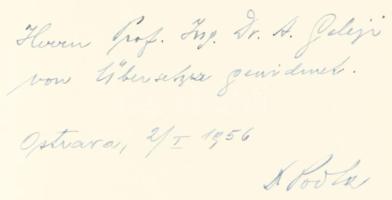 Herrn Prof. Ing. Dr. A. Geleji
vom Übersetzer gewidmet.
Ostrava, 2/I 1956